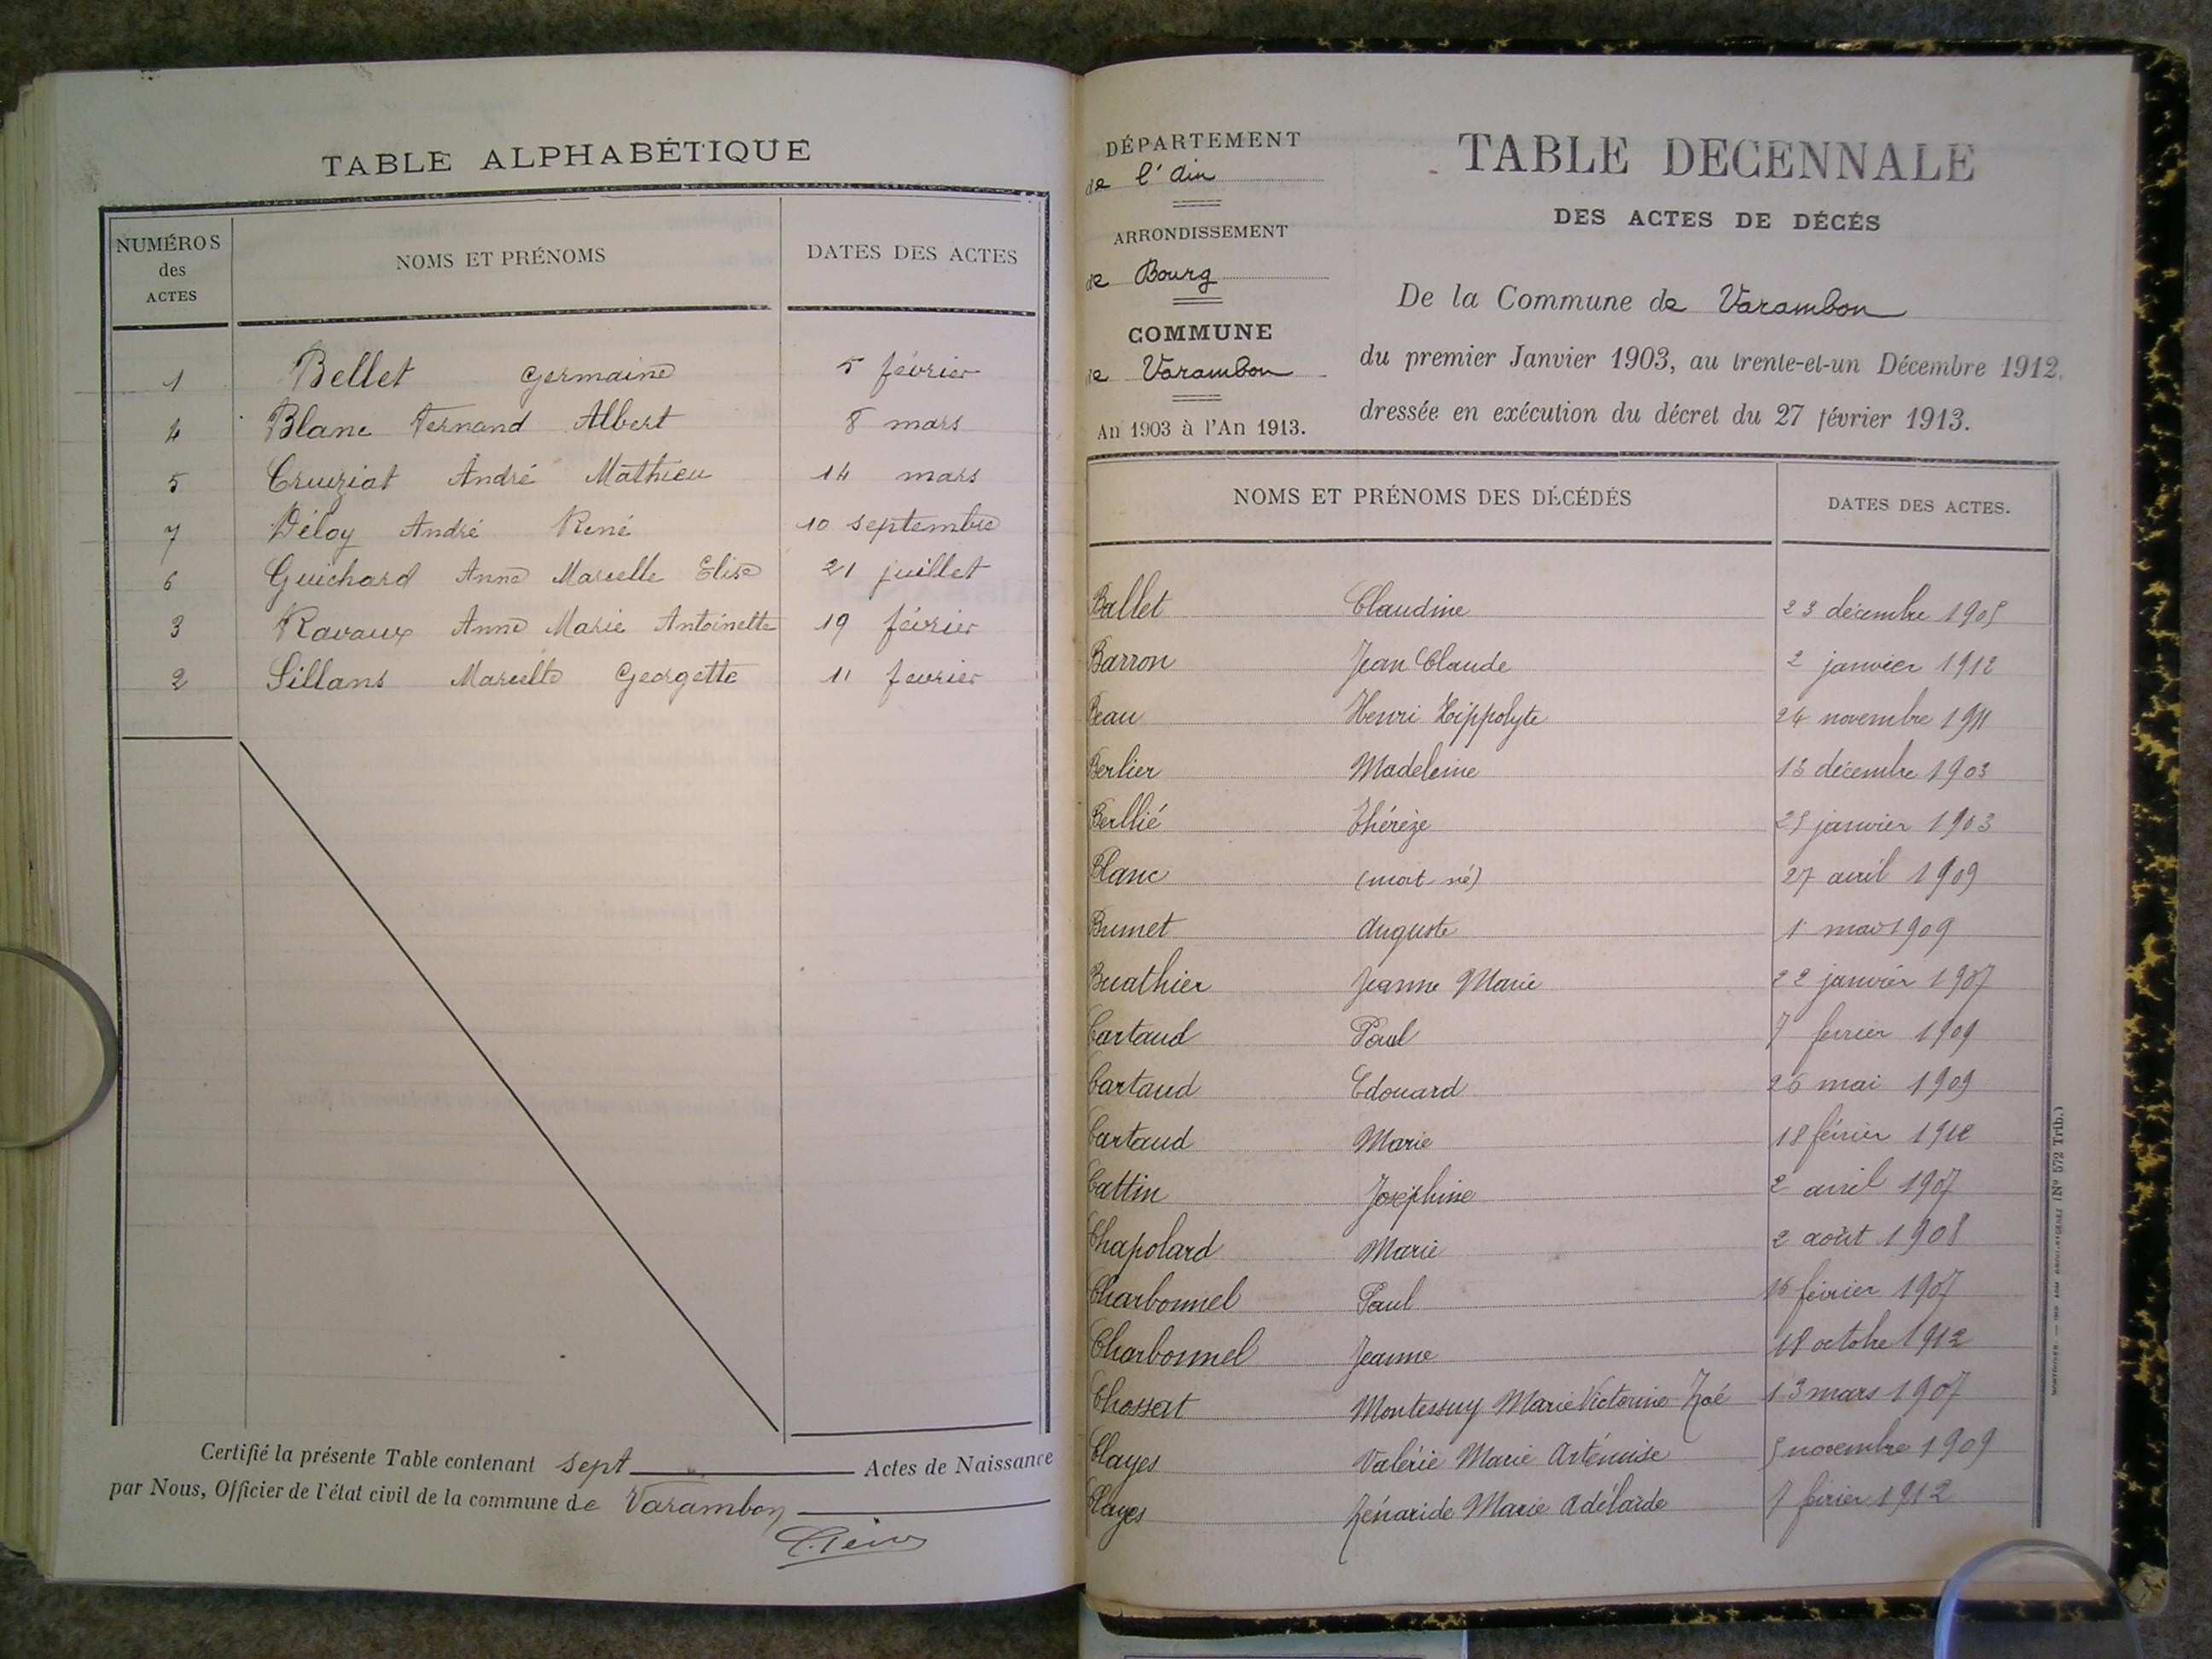 TABLE ALPHABÉTIQUE
NUMÉROS
des
ACTES
NOMS ET PRÉNOMS
DATES DES ACTES
1 Bellet Germaine 5 février
4 Blanc Fernand Albert 8 mars
5 Cruiziat André Mathieu 14 mars
7 Déloy André René 10 septembre
6 Guichard Anne Marcelle Elise 21 juillet
3 Ravaux Anne Marie Antoinette 19 février
2 Sillans Marcelle Georgette 11 fevrier
Certifié la présente Table contenant sept Actes de Naissance
par Nous, Officier de l'état civil de la commune de Varambon
DÉPARTEMENT
de l'Ain
ARRONDISSEMENT
de Bourg
COMMUNE
de Varambon
An 1903 à l'An 1913.
TABLE DECENNALE
DES ACTES DE DÉCÉS
De la Commune de Varambon
du premier Janvier 1903, au trente-et-un Décembre 1912.
dressée en exécution du décret du 27 février 1913.
NOMS ET PRÉNOMS DES DÉCÉDÉS
DATES DES ACTES.
Ballet Claudine 23 décembre 1905
Barron Jean Claude 2 janvier 1912
Beau Henri Hippolyte 24 novembre 1911
Berlier Madeleine 13 décembre 1903
Berllié Thérèze 25 janvier 1903
Blanc (mort-né) 27 avril 1909
Brunet Auguste 1 mars 1909
Buathier Jeanne Marie 22 janvier 1907
Cartaud Paul 7 fevrier 1909
Cartaud Edouard 26 mai 1909
Cartaud Marie 18 février 1912
Cattin Joséphine 2 avril 1907
Chapolard Marie 2 août 1908
Charbonnel Paul 16 février 1907
Charbonnel Jeanne 18 octobre 1912
Chossat Montessuy Marie Victorine Zoé 13 mars 1907
Clayes Valérie Marie Artémise 5 novembre 1909
Clayes Zénaride Marie Adélaïde 7 février 1912
(No 572 Trib.)